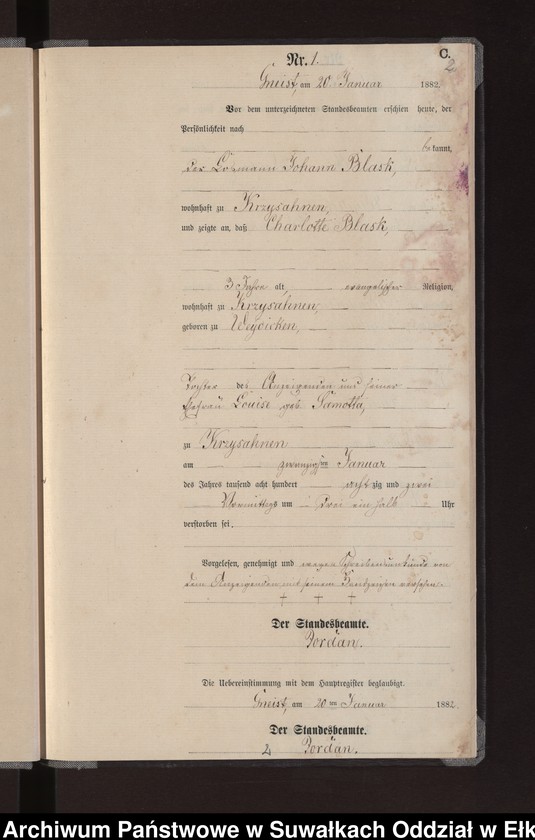 C.
Nr. 1.
2
Gneist, am 20 Januar 1882.
Vor dem unterzeichneten Standesbeamten erschien heute, der
Persönlichkeit nach
bekannt,
der Losmann Johann Blask,
wohnhaft zu Krzysahnen,
und zeigte an, daß Charlotte Blask,
3 Jahre alt, evangelischer Religion,
wohnhaft zu Krzysahnen,
geboren zu
Tochter des Anzeigenden und seiner
Ehefrau Louise geb.
zu Krzysahnen
am zwanzigsten Januar
des Jahres tausend acht hundert acht zig und zwei
Vormittags um zwei ein halb Uhr
verstorben sei.
Vorgelesen, genehmigt und wegen Schreibensunkunde von
dem Anzeigenden mit seinem Handzeichen versehen.
+ + +
Der Standesbeamte.
Jordan.
Die Uebereinstimmung mit dem Hauptregister beglaubigt.
Gneist, am 20ten Januar 1882.
Der Standesbeamte.
Jordan.
Archiwum Państwowe w Suwałkach Oddział w Ełk